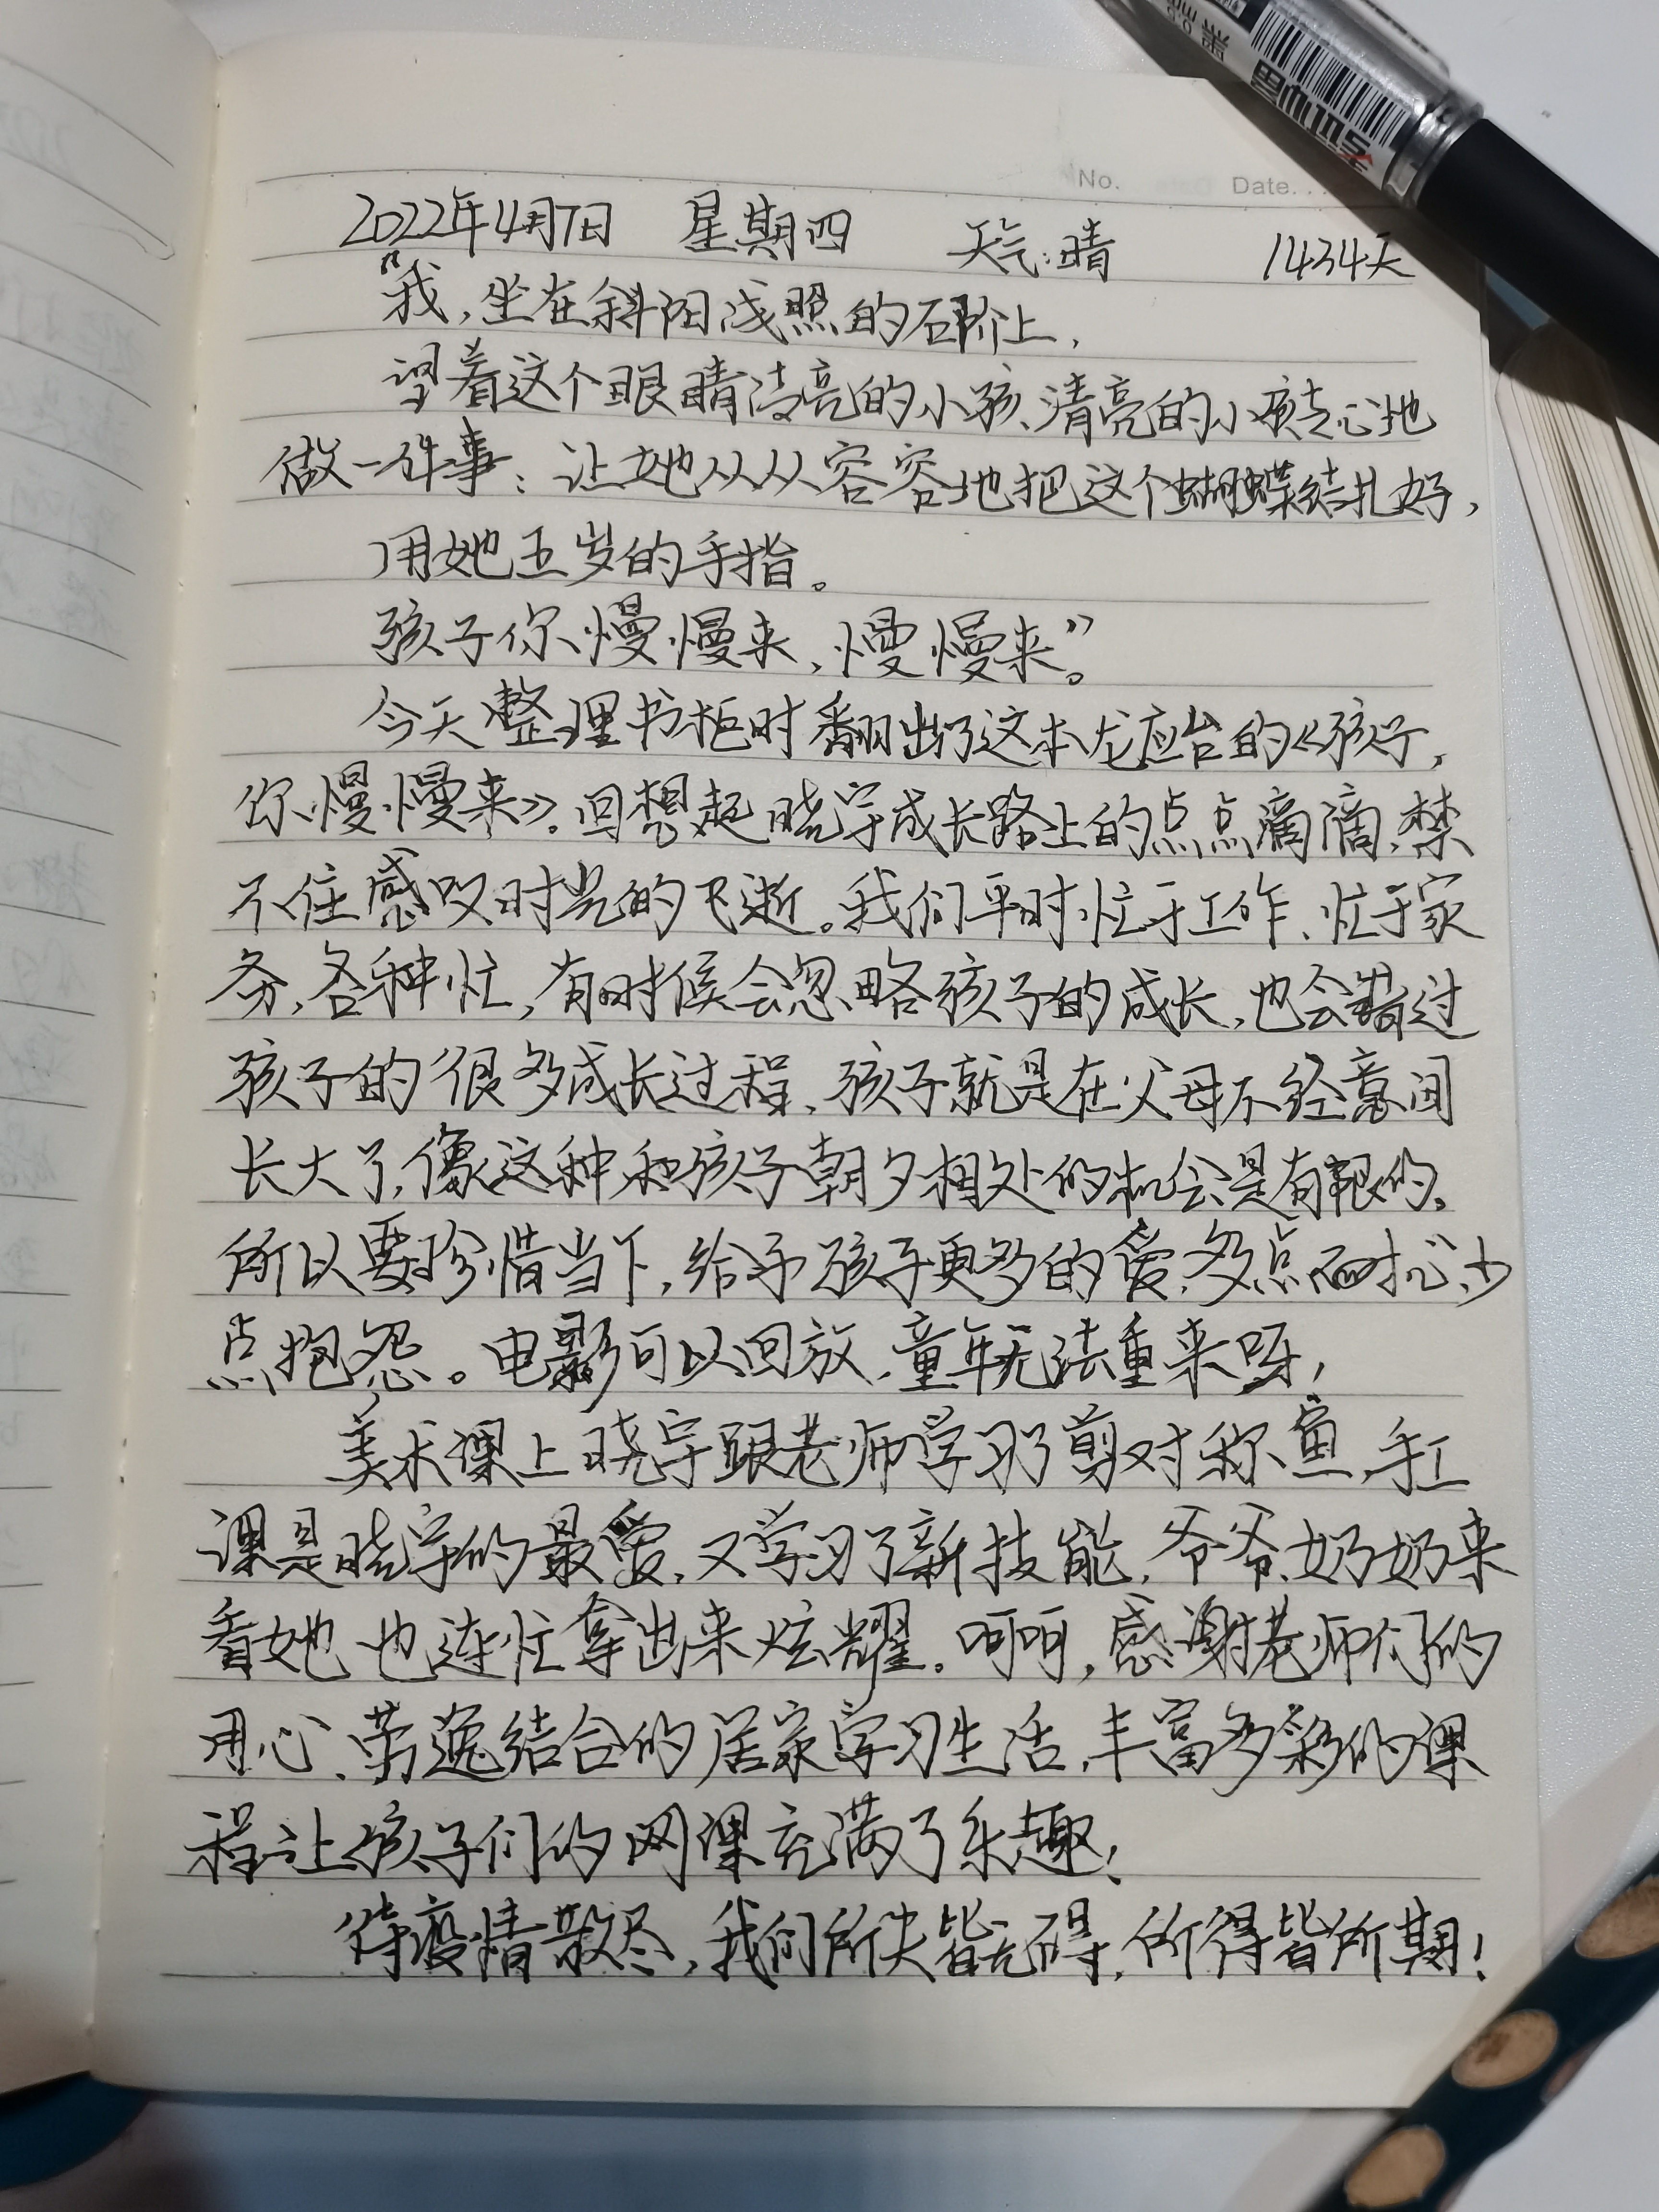 No. Date.
2022年4月7日 星期四 天气:晴 1434天
“我,坐在斜阳浅照的石阶上,
望着这个眼睛清亮的小孩、清亮的小孩专心地
做一件事:让她从从容容地把这个蝴蝶结扎好,
用她五岁的手指。
孩子你慢慢来,慢慢来。”
今天整理书柜时翻出了这本龙应台的《孩子,
你慢慢来》。回想起晓宇成长路上的点点滴滴,禁
不住感叹时光的飞逝。我们平时忙于工作、忙于家
务,各种忙,有时候会忽略孩子的成长,也会错过
孩子的很多成长过程,孩子就是在父母不经意间
长大了,像这种和孩子朝夕相处的机会是有限的。
所以要珍惜当下,给予孩子更多的爱,多点耐心,少
点抱怨。电影可以回放,童年无法重来呀!
美术课上晓宇跟老师学习了剪对称鱼,手工
课是晓宇的最爱,又学习了新技能,爷爷、奶奶来
看她也连忙拿出来炫耀。呵呵,感谢老师们的
用心、劳逸结合的居家学习生活,丰富多彩的课
程让孩子们的网课充满了乐趣!
待疫情散尽,我们所失皆无碍,所得皆所期!